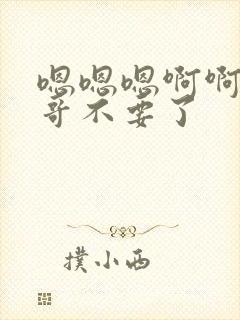 嗯嗯嗯啊啊
哥不要了
撲小西